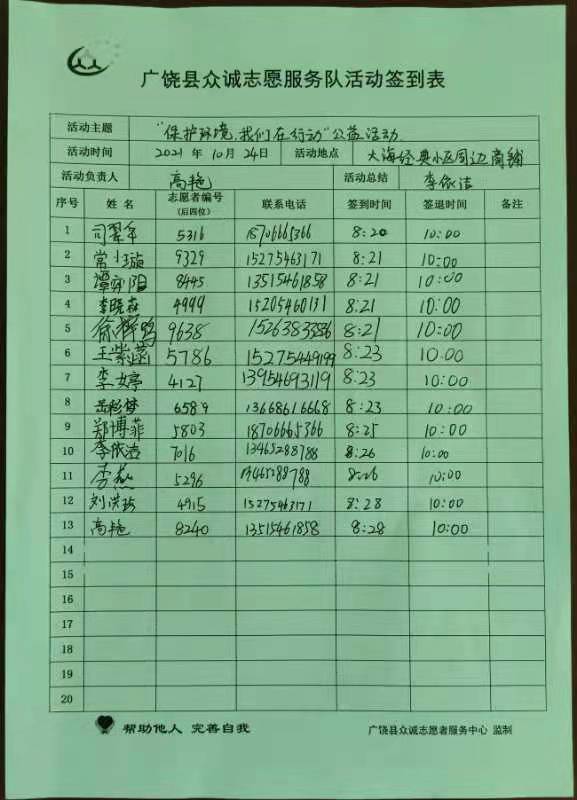 广饶县众诚志愿服务队活动签到表
活动主题 "保护环境,我们在行动"公益活动
活动时间 2021 年 10月 24日 活动地点 大海经典小区周边商铺
活动负责人 高艳 活动总结 李依洁
序号 姓 名 志愿者编号 (后四位) 联系电话 签到时间 签退时间 备注
1 5316 18706665366 8:20 10:00
2 常小璇 9329 15275463171 8:21 10:00
3 8445 13515461858 8:21 10:00
4 李晓森 4999 15205460131 8:21 10:00
5 9638 8:21 10:00
6 王紫菡 5786 15275449199 8:23 10:00
7 李婷 4127 13954693119 8:23 10:00
8 6589 13668616668 8:23 10:00
9 郑博菲 5803 18706665366 8:25 10:00
10 李依洁 7016 13465288788 8:26 10:00
11 李燕 5296 13465288788 8:26 10:00
12 4915 15275463171 8:28 10:00
13 高艳 8240 13515461858 8:28 10:00
14
15
16
17
18
19
20
帮助他人 完善自我 广饶县众诚志愿者服务中心 监制